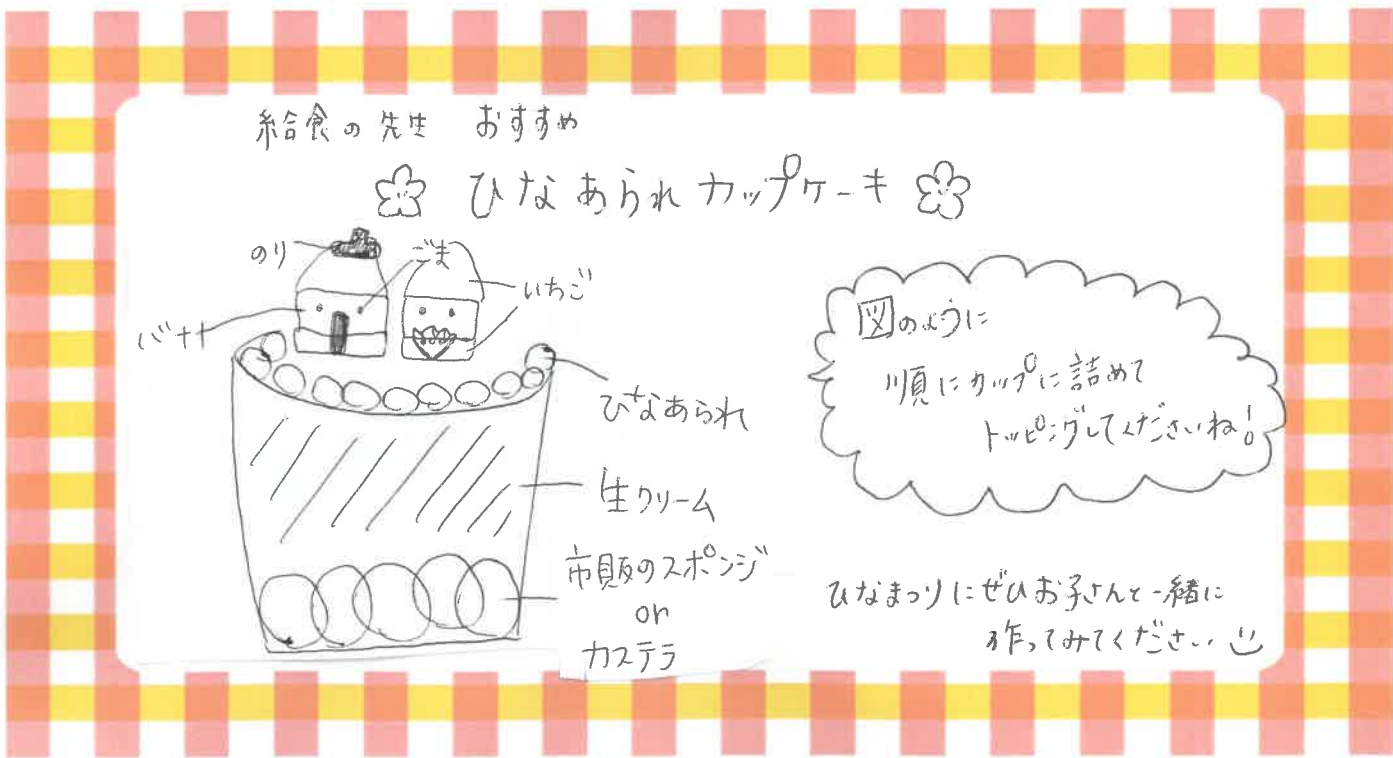 給食の先生 おすすめ
ひなあられカップケーキ
のり
ごま
いちご
バナナ
ひなあられ
生クリーム
市販のスポンジ
or
カステラ
図のように
順にカップに詰めて
トッピングしてくださいね!
ひなまつりにぜひお子さんと一緒に
作ってみてください